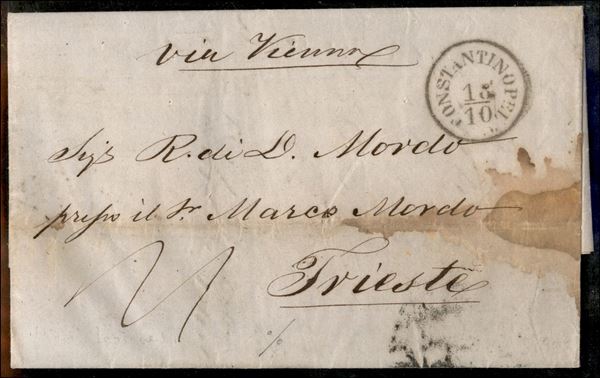 via Vienna
CONSTANTINOPEL
15/10
Sigr R. di D. Mordo
presso il Sr Marco Mordo
Trieste